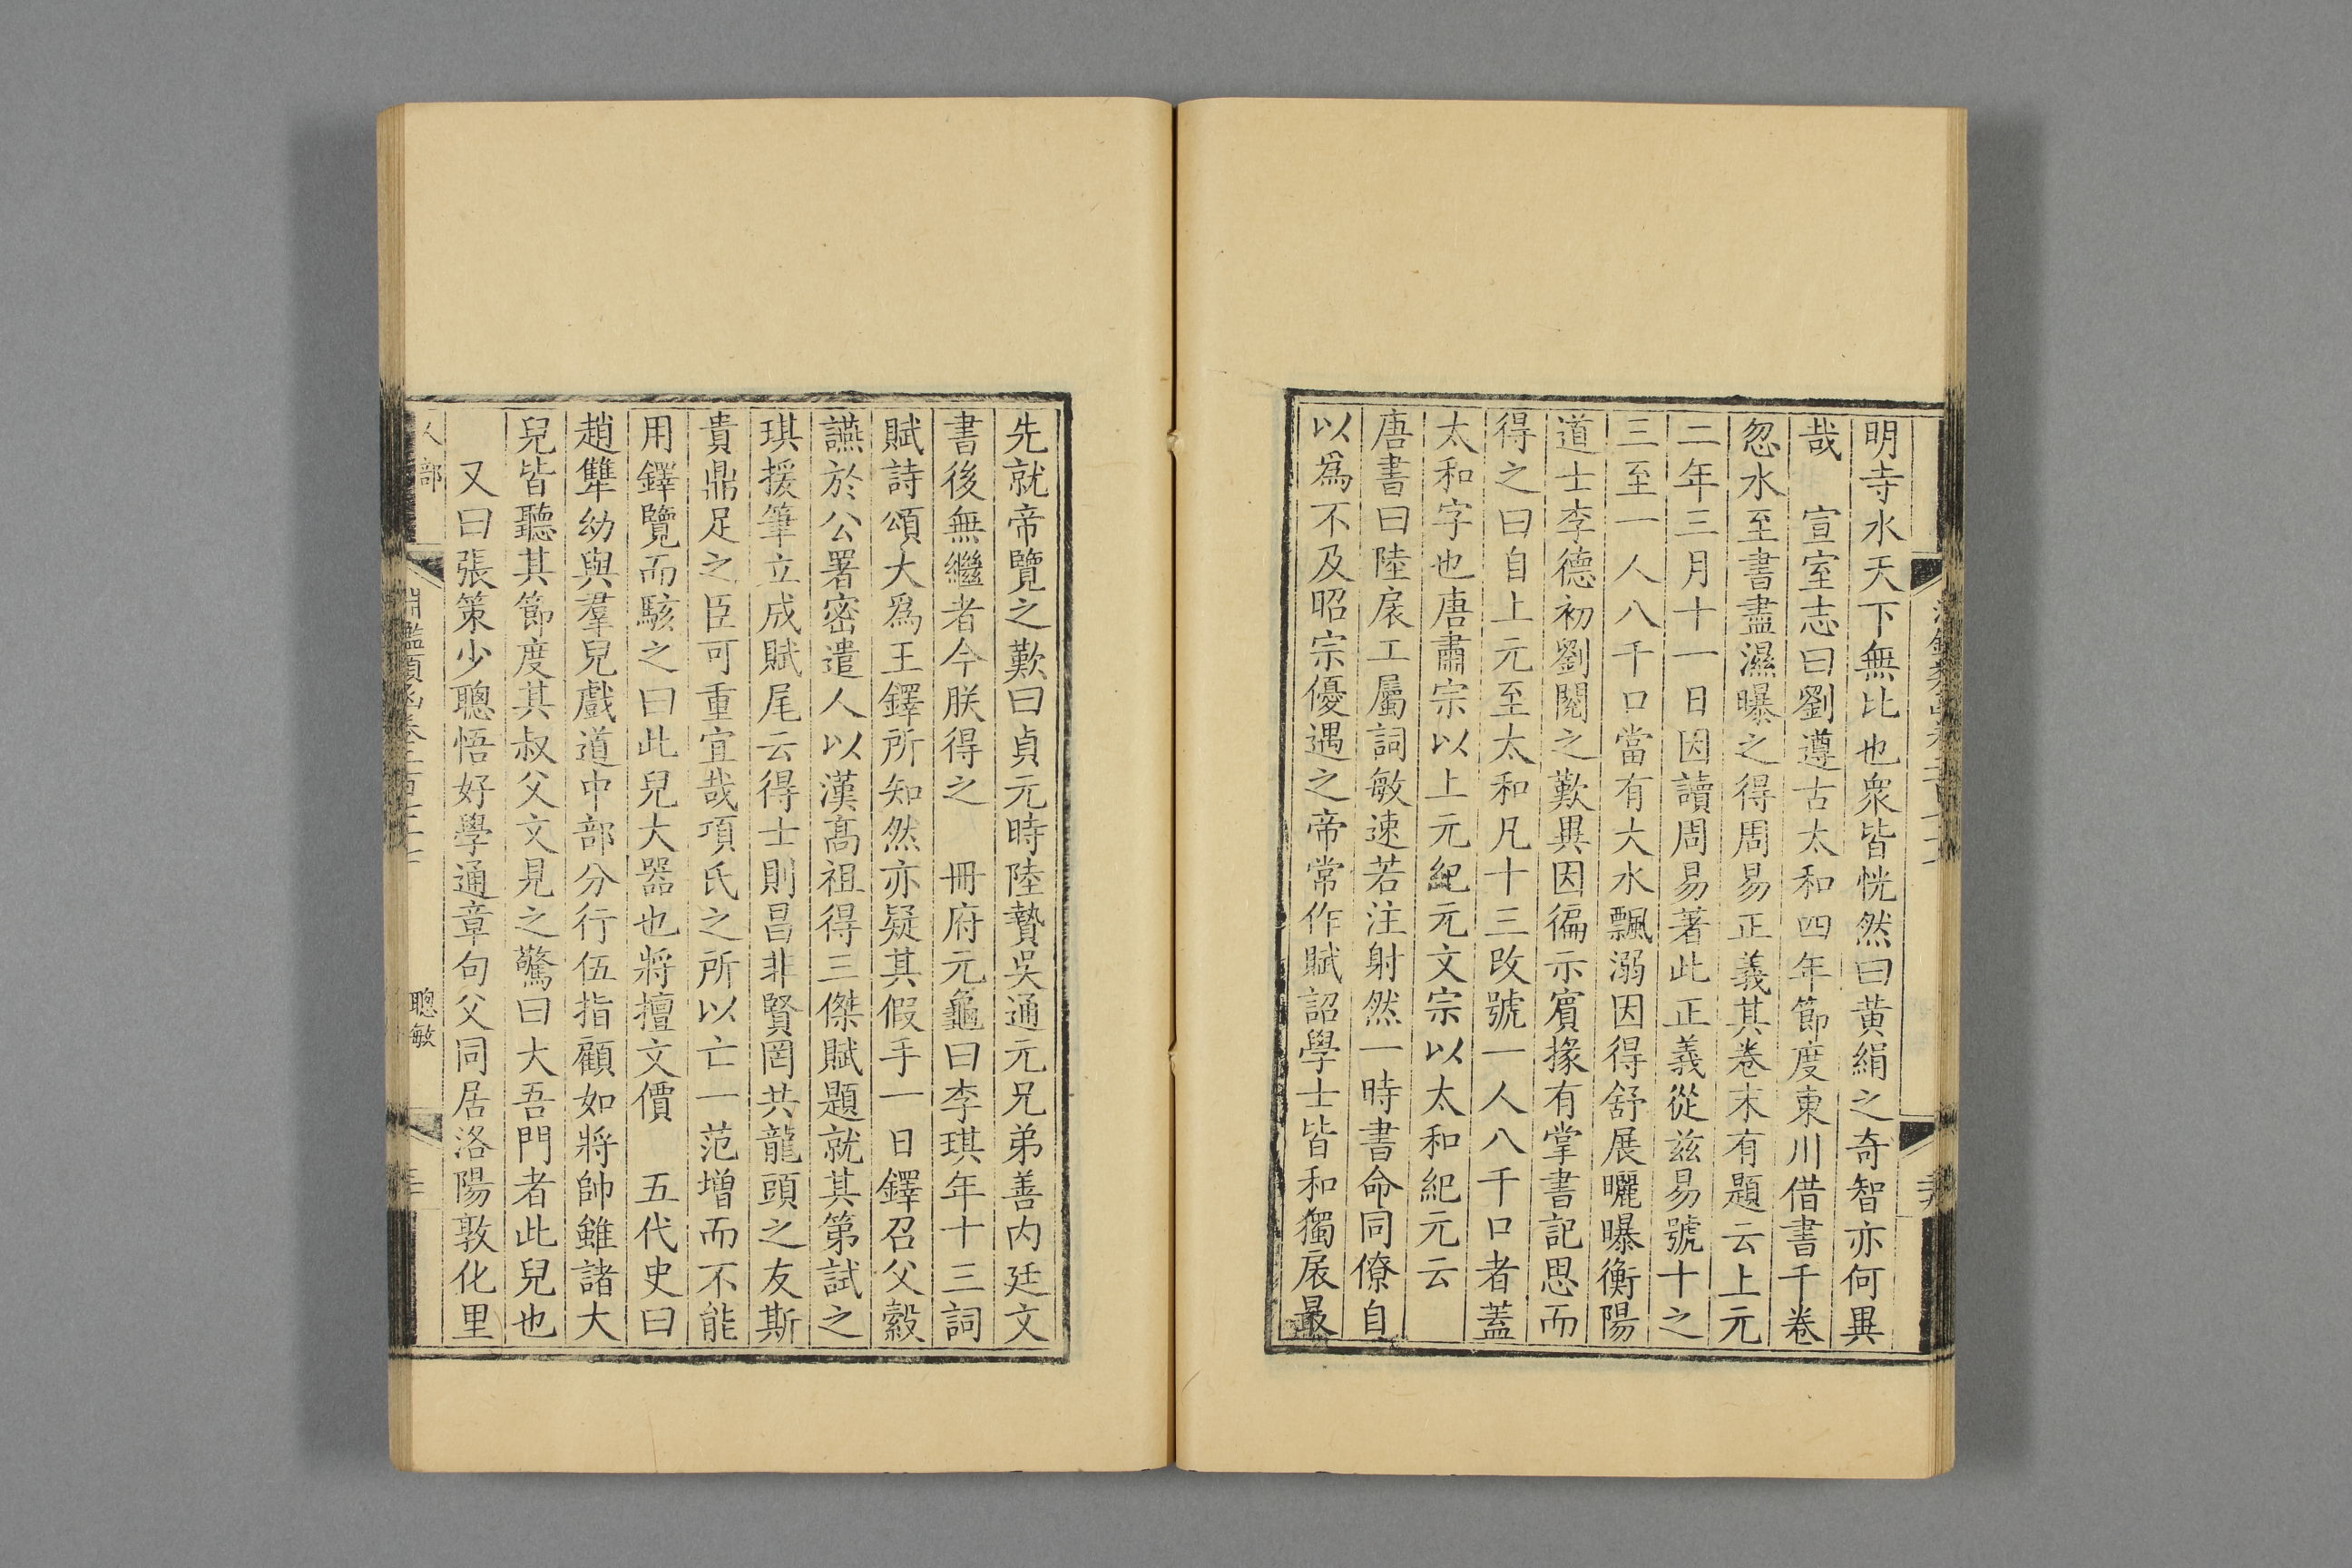 明寺水天下無比也衆皆恍然曰黄絹之奇智亦何異
哉　宣室志曰劉遵古太和四年節度東川借書千卷
忽水至書盡濕曝之得周易正義其卷末有題云上元
二年三月十一日因讀周易著此正義從兹易號十之
三至一人八千口當有大水飄溺因得舒展曬曝衡陽
道士李德初劉閱之歎異因徧示賓掾有掌書記思而
得之曰自上元至太和凡十三改號一人八千口者蓋
太和字也唐肅宗以上元紀元文宗以太和紀元云
唐書曰陸扆工屬詞敏速若注射然一時書命同僚自
以爲不及昭宗優遇之帝常作賦詔學士皆和獨扆最
先就帝覽之歎曰貞元時陸贄吳通元兄弟善内廷文
書後無繼者今朕得之　冊府元龜曰李琪年十三詞
賦詩頌大爲王鐸所知然亦疑其假手一日鐸召父縠
讌於公署密遣人以漢高祖得三傑賦題就其第試之
琪援筆立成賦尾云得士則昌非賢罔共龍頭之友斯
貴鼎足之臣可重宜哉項氏之所以亡一范增而不能
用鐸覽而駭之曰此兒大器也將擅文價　五代史曰
趙犨幼與羣兒戲道中部分行伍指顧如將帥雖諸大
兒皆聽其節度其叔父文見之驚曰大吾門者此兒也
又曰張策少聰悟好學通章句父同居洛陽敦化里
人部
淵鑑類函卷二百
聰敏